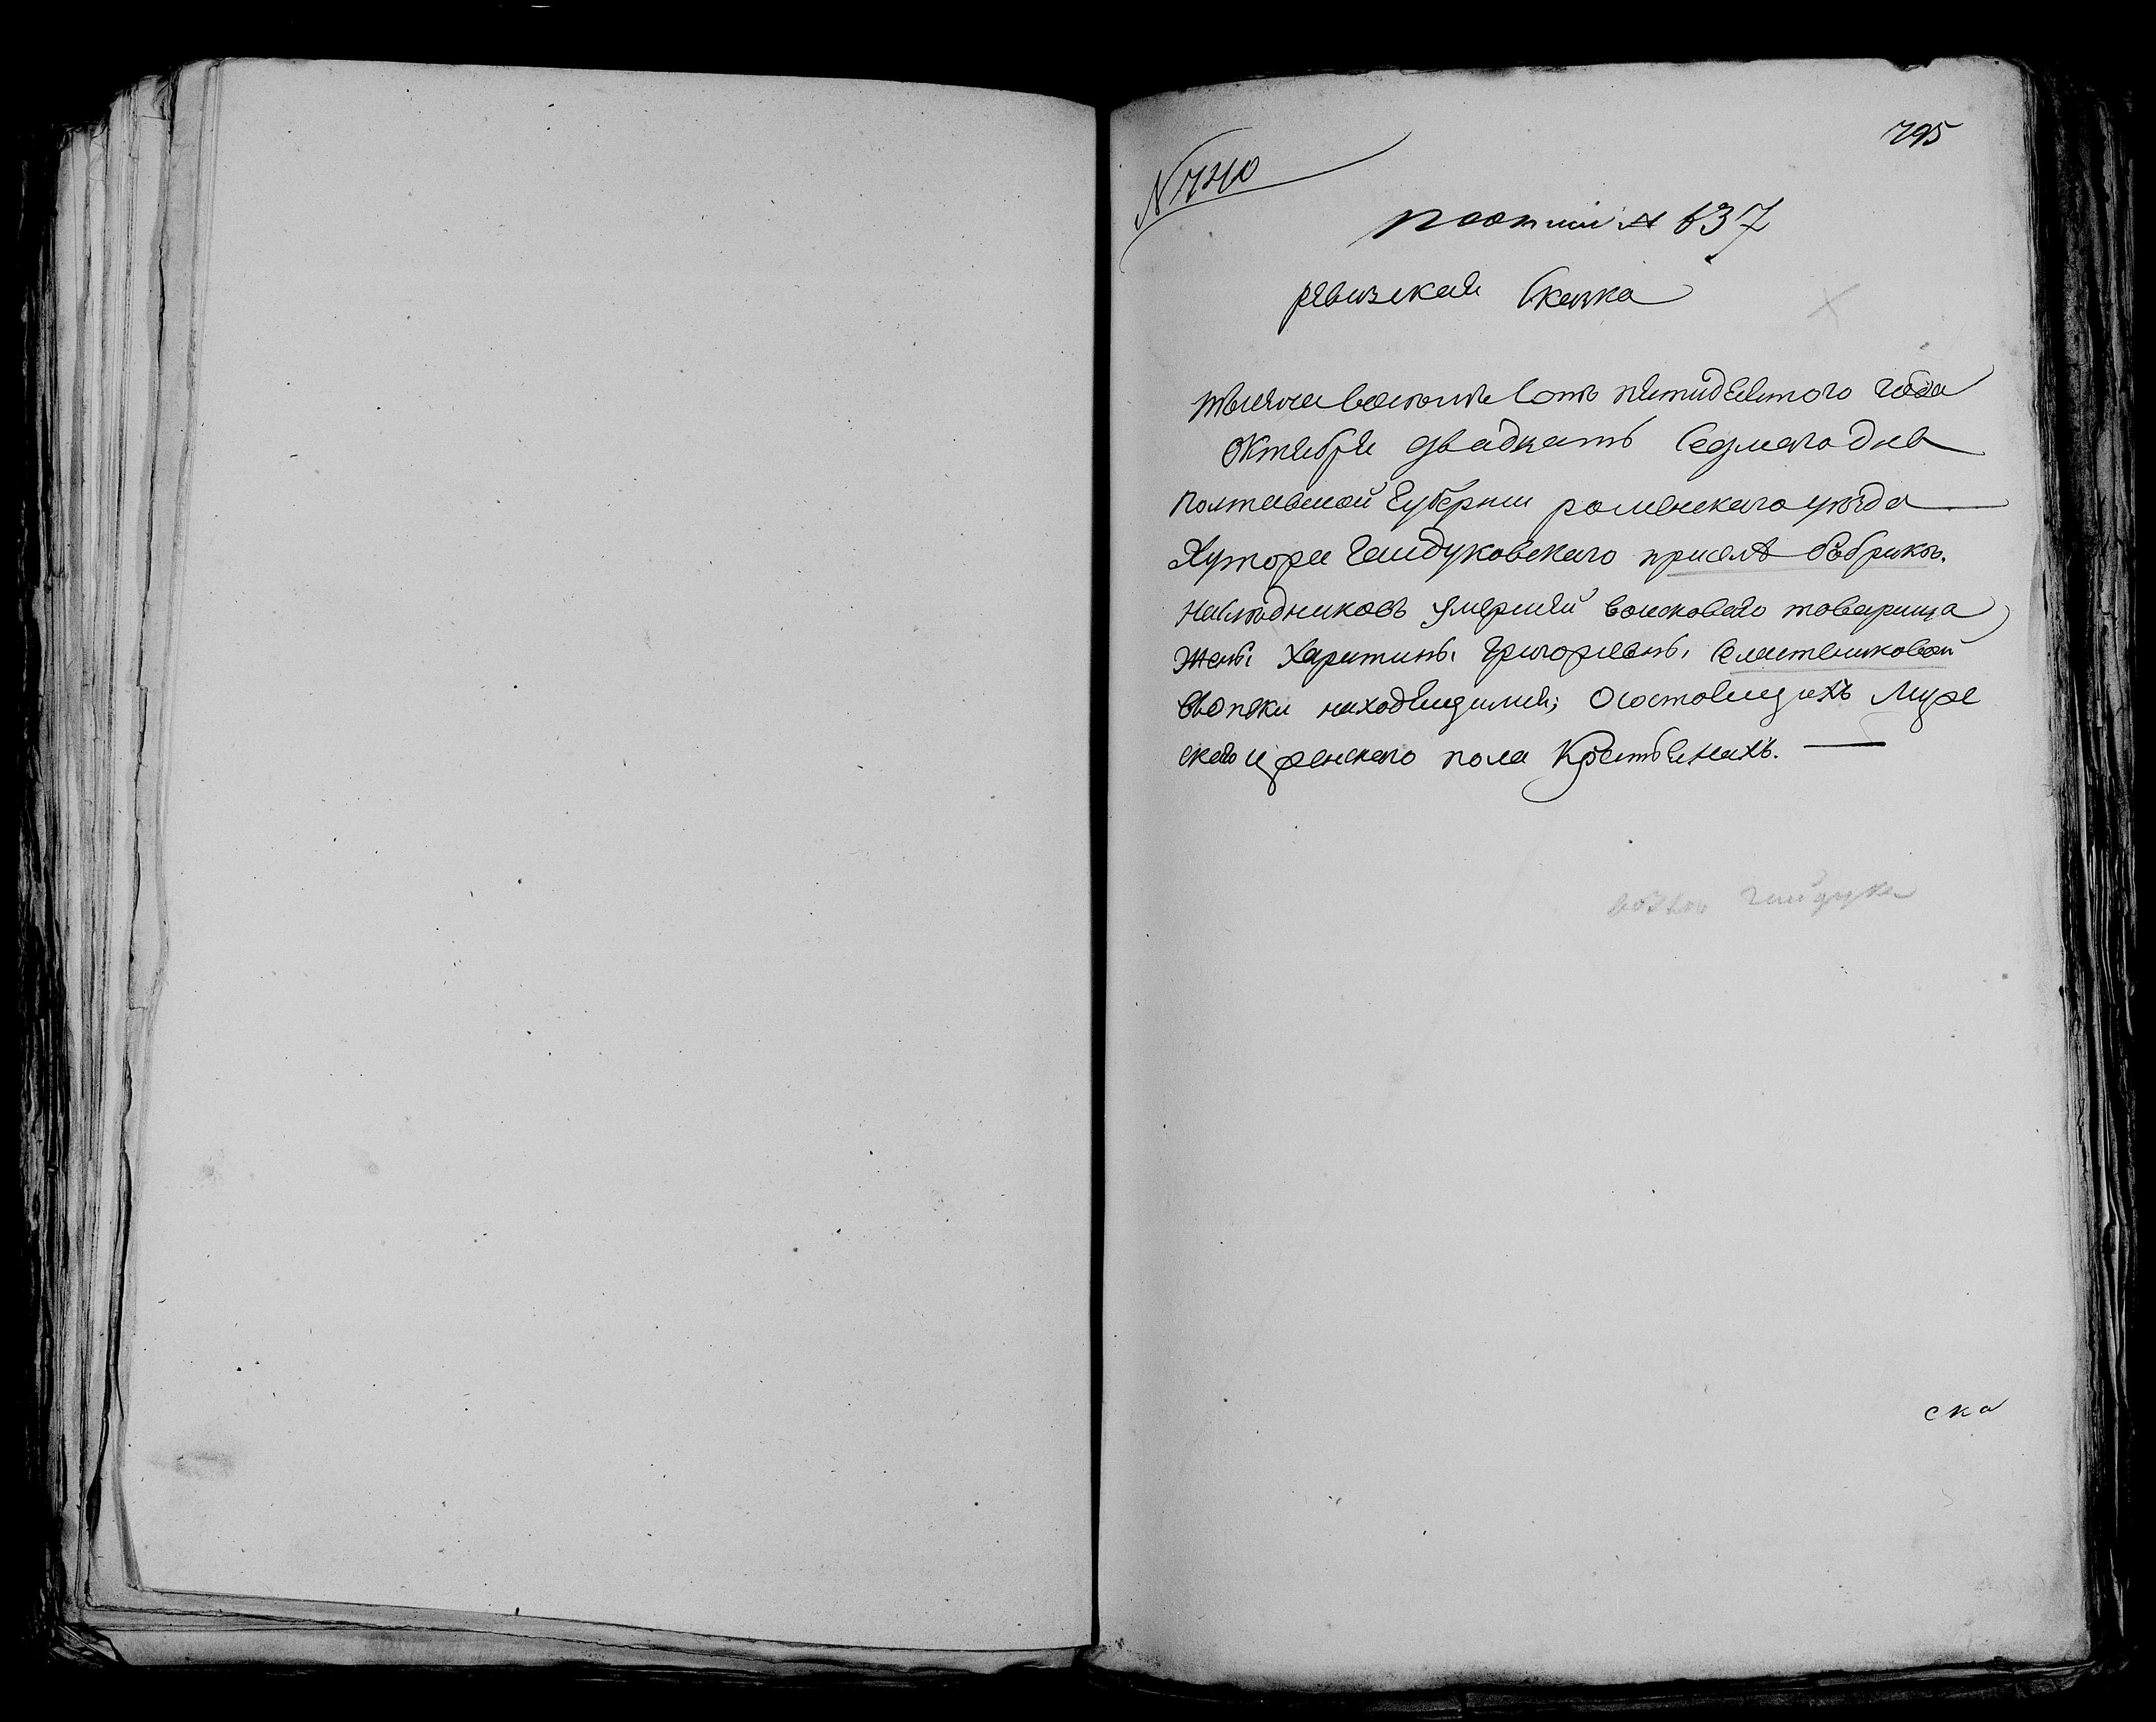 795
N 740
по описи № 637
ревизская Сказка
тысяча восемьсотъ пятидесятого года
Октября двадцать Седмаго дня
Полтавской Губернии роменскаго уезда
Хутора Гайдуковскаго при селѣ бобрикѣ.
Наследниковъ умершей войсковаго товарища
жены Харитины Григорьевны Сластениковой
въ опеки находящимся; О состоящихъ Муже
скаго и женскаго пола Крестьянахъ.
Гайдука
ска